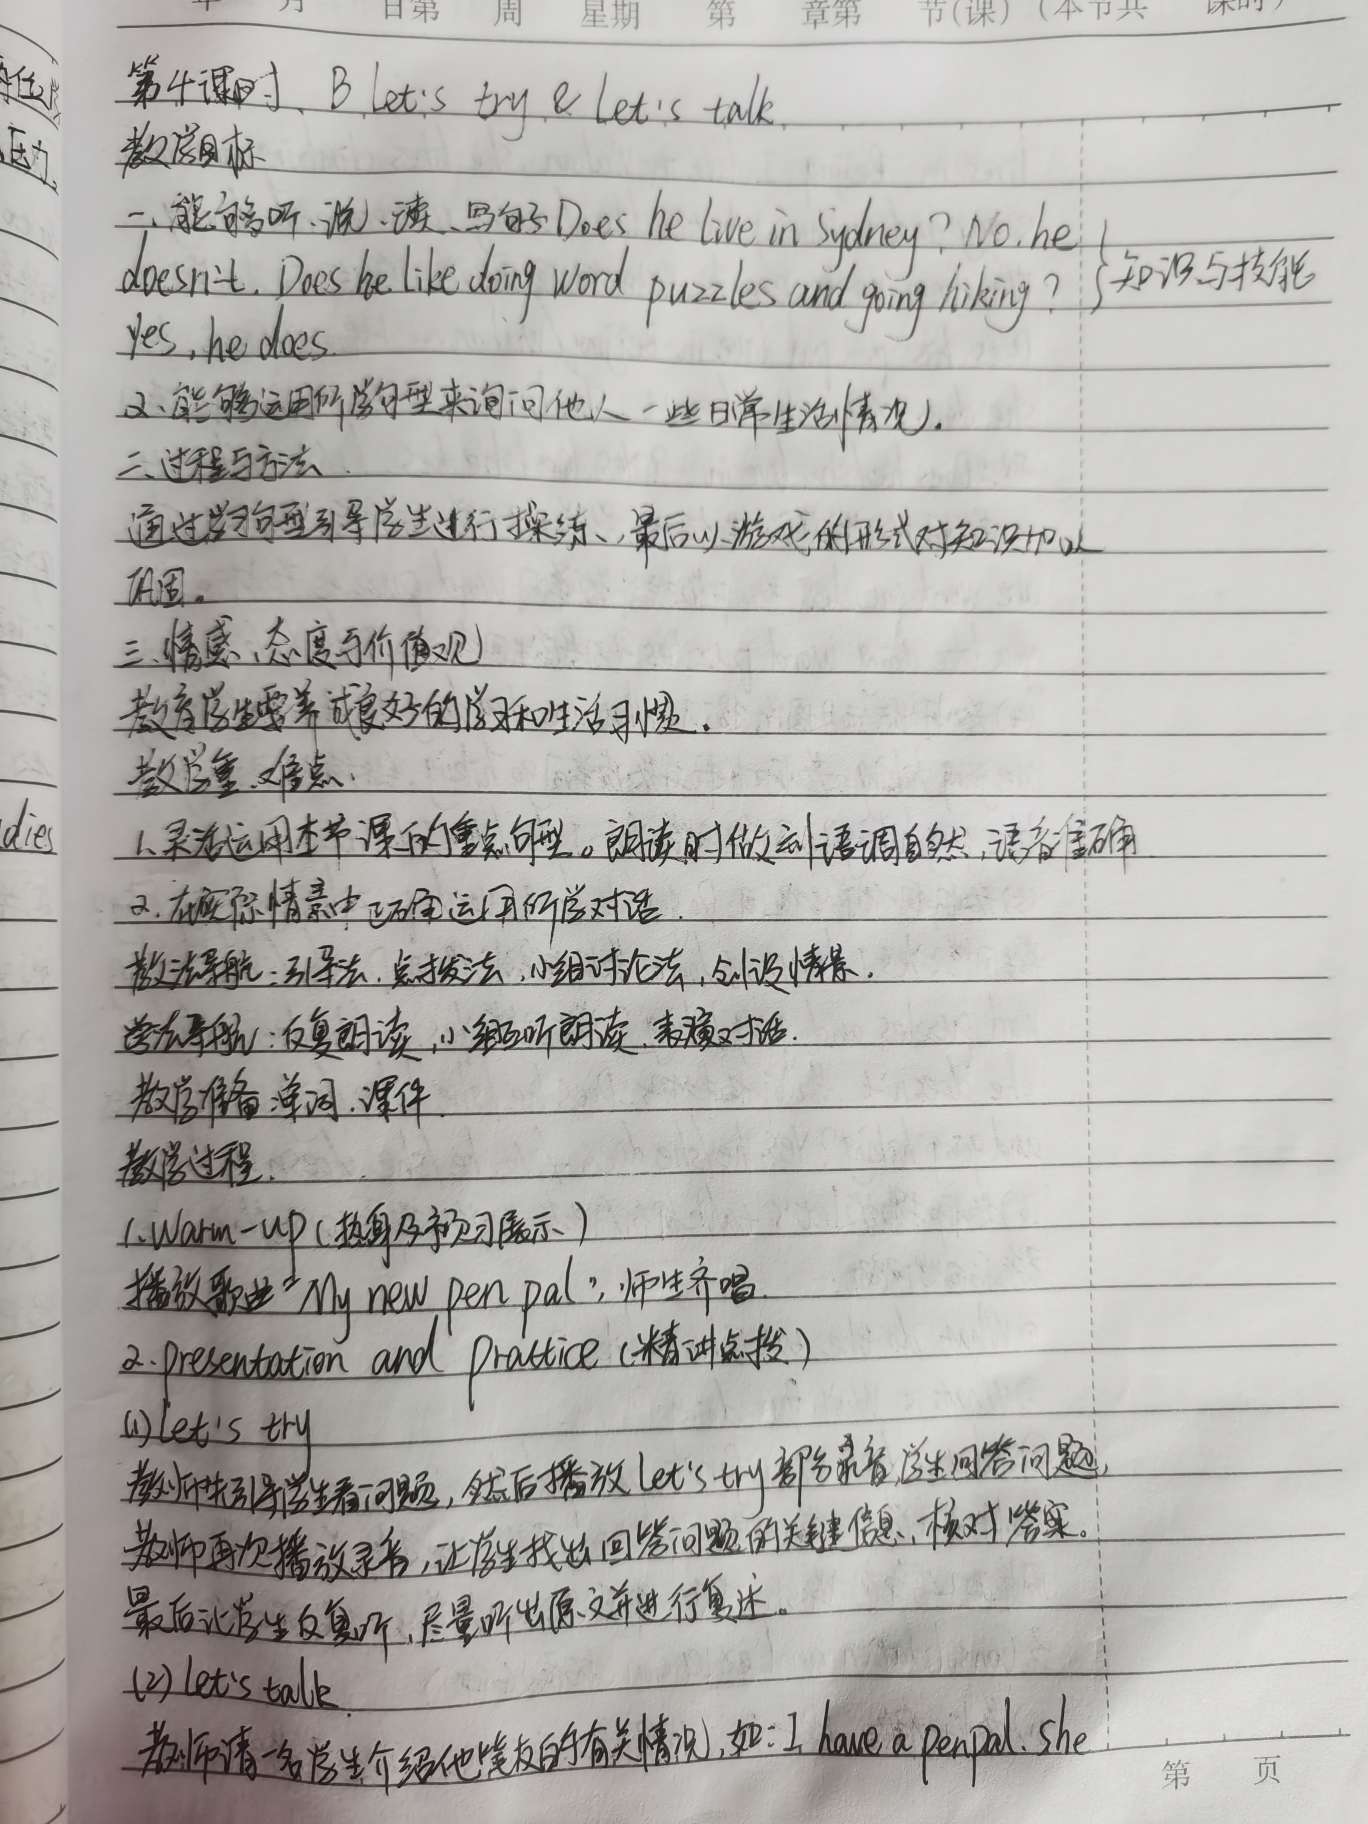 年 月 日第 周 星期 第 章第 节(课) (本节共 课时)
第4课时、B Let's try & Let's talk
教学目标
一、能够听、说、读、写句子Does he live in Sydney? No, he
doesn't. Does he like doing word puzzles and going hiking? } 知识与技能
Yes, he does.
2、能够运用所学句型来询问他人一些日常生活情况。
二、过程与方法
通过学习句型引导学生进行操练、最后以游戏的形式对知识加以
巩固。
三、情感、态度与价值观
教育学生要养成良好的学习和生活习惯。
教学重、难点、
1、灵活运用本节课的重点句型。朗读时做到语调自然,语音准确
2.在实际情景中正确运用所学对话.
教法导航:引导法.点拨法,小组讨论法,创设情景.
学法导航:反复朗读,小组互听朗读.表演对话.
教学准备:单词.课件.
教学过程.
1.Warm-up(热身及预习展示)
播放歌曲"My new pen pal",师生齐唱.
2.presentation and practice(精讲点拨)
(1)Let's try
教师先引导学生看问题,然后播放Let's try部分录音,学生回答问题,
教师再次播放录音,让学生找出回答问题的关键信息,核对答案。
最后让学生反复听,尽量听出原文并进行复述。
(2)Let's talk.
教师请一名学生介绍他笔友的有关情况,如:I have a penpal. She
第 页
dies
压力